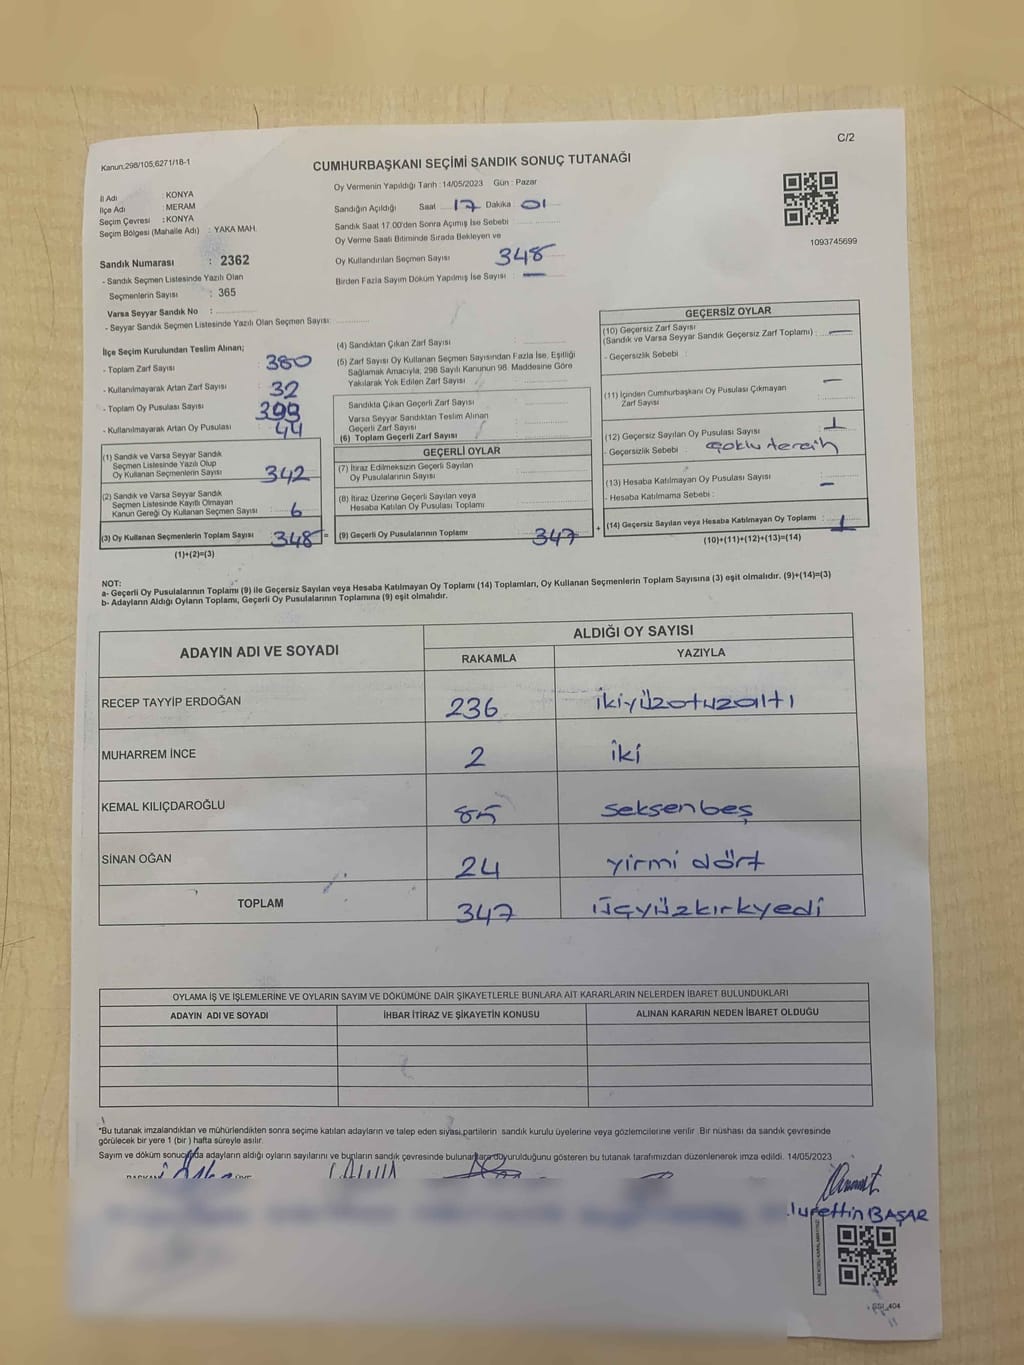 C/2
Kanun:298/105,6271/18-1
CUMHURBAŞKANI SEÇİMİ SANDIK SONUÇ TUTANAĞI
İl Adı : KONYA
İlçe Adı : MERAM
Seçim Çevresi : KONYA
Seçim Bölgesi (Mahalle Adı) : YAKA MAH.
Sandık Numarası : 2362
- Sandık Seçmen Listesinde Yazılı Olan
Seçmenlerin Sayısı : 365
Varsa Seyyar Sandık No :
- Seyyar Sandık Seçmen Listesinde Yazılı Olan Seçmen Sayısı:
Oy Vermenin Yapıldığı Tarih : 14/05/2023 Gün : Pazar
Sandığın Açıldığı Saat 17 Dakika 01
Sandık Saat 17.00'den Sonra Açımış İse Sebebi :
Oy Verme Saati Bitiminde Sırada Bekleyen ve
Oy Kullandırılan Seçmen Sayısı 348
Birden Fazla Sayım Döküm Yapılmış İse Sayısı : —
1093745699
İlçe Seçim Kurulundan Teslim Alınan;
- Toplam Zarf Sayısı : 380
- Kullanılmayarak Artan Zarf Sayısı : 32
- Toplam Oy Pusulası Sayısı : 399
- Kullanılmayarak Artan Oy Pusulası : 44
(1) Sandık ve Varsa Seyyar Sandık
Seçmen Listesinde Yazılı Olup
Oy Kullanan Seçmenlerin Sayısı : 342
(2) Sandık ve Varsa Seyyar Sandık
Seçmen Listesinde Kayıtlı Olmayan
Kanun Gereği Oy Kullanan Seçmen Sayısı : 6
(3) Oy Kullanan Seçmenlerin Toplam Sayısı : 348 =
(1)+(2)=(3)
(4) Sandıktan Çıkan Zarf Sayısı :
(5) Zarf Sayısı Oy Kullanan Seçmen Sayısından Fazla İse, Eşitliği
Sağlamak Amacıyla, 298 Sayılı Kanunun 98. Maddesine Göre
Yakılarak Yok Edilen Zarf Sayısı :
Sandıkta Çıkan Geçerli Zarf Sayısı :
Varsa Seyyar Sandıktan Teslim Alınan
Geçerli Zarf Sayısı :
(6) Toplam Geçerli Zarf Sayısı :
GEÇERLİ OYLAR
(7) İtiraz Edilmeksizin Geçerli Sayılan
Oy Pusulalarının Sayısı :
(8) İtiraz Üzerine Geçerli Sayılan veya
Hesaba Katılan Oy Pusulası Toplamı :
(9) Geçerli Oy Pusulalarının Toplamı : 347 +
GEÇERSİZ OYLAR
(10) Geçersiz Zarf Sayısı
(Sandık ve Varsa Seyyar Sandık Geçersiz Zarf Toplamı) : —
- Geçersizlik Sebebi :
(11) İçinden Cumhurbaşkanı Oy Pusulası Çıkmayan
Zarf Sayısı : —
(12) Geçersiz Sayılan Oy Pusulası Sayısı : 1
- Geçersizlik Sebebi : çoklu tercih
(13) Hesaba Katılmayan Oy Pusulası Sayısı : —
- Hesaba Katılmama Sebebi :
(14) Geçersiz Sayılan veya Hesaba Katılmayan Oy Toplamı : 1
(10)+(11)+(12)+(13)=(14)
NOT:
a- Geçerli Oy Pusulalarının Toplamı (9) ile Geçersiz Sayılan veya Hesaba Katılmayan Oy Toplamı (14) Toplamları, Oy Kullanan Seçmenlerin Toplam Sayısına (3) eşit olmalıdır. (9)+(14)=(3)
b- Adayların Aldığı Oyların Toplamı, Geçerli Oy Pusulalarının Toplamına (9) eşit olmalıdır.
ADAYIN ADI VE SOYADI ALDIĞI OY SAYISI
RAKAMLA YAZIYLA
RECEP TAYYİP ERDOĞAN 236 ikiyüzotuzaltı
MUHARREM İNCE 2 iki
KEMAL KILIÇDAROĞLU 85 seksenbeş
SİNAN OĞAN 24 yirmi dört
TOPLAM 347 üçyüzkırkyedi
OYLAMA İŞ VE İŞLEMLERİNE VE OYLARIN SAYIM VE DÖKÜMÜNE DAİR ŞİKAYETLERLE BUNLARA AİT KARARLARIN NELERDEN İBARET BULUNDUKLARI
ADAYIN ADI VE SOYADI İHBAR İTİRAZ VE ŞİKAYETİN KONUSU ALINAN KARARIN NEDEN İBARET OLDUĞU
*Bu tutanak imzalandıktan ve mühürlendikten sonra seçime katılan adayların ve talep eden siyasi partilerin sandık kurulu üyelerine veya gözlemcilerine verilir. Bir nüshası da sandık çevresinde
görülecek bir yere 1 (bir) hafta süreyle asılır.
Sayım ve döküm sonucunda adayların aldığı oyların sayılarını ve bunların sandık çevresinde bulunanlara duyurulduğunu gösteren bu tutanak tarafımızdan düzenlenerek imza edildi. 14/05/2023
BAŞAR